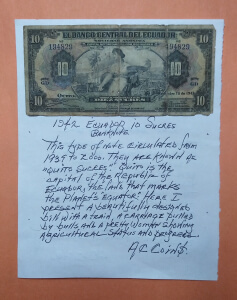 EL BANCO CENTRAL DEL ECUADOR
194829 194829
10 10
QUITO
10 DIEZ SUCRES 10
1942 ECUADOR 10 SUCRES
BANKNOTE
This type of note circulated from
1939 to 2000. They are known as
"QUITO SUCRES". QUITO is the
capital of the Republic of
Ecuador, the land that marks
the planet's equator. Here I
present a beautifully designed
bill with a train, a carriage pulled
by bulls and a pretty woman showing
agricultural status and progress.
AC COINS